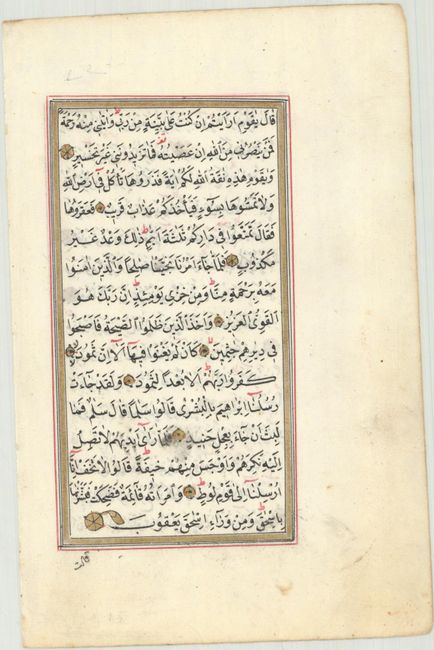 قَالَ يٰقَوْمِ اَرَاَيْتُمْ اِنْ كُنْتُ عَلٰى بَيِّنَةٍ مِنْ رَبّٖى وَاٰتٰينٖى مِنْهُ رَحْمَةً
فَمَنْ يَنْصُرُنٖى مِنَ اللّٰهِ اِنْ عَصَيْتُهُ فَمَا تَزٖيدُونَنٖى غَيْرَ تَخْسٖيرٍ
وَيٰقَوْمِ هٰذِهٖ نَاقَةُ اللّٰهِ لَكُمْ اٰيَةً فَذَرُوهَا تَاْكُلْ فٖى اَرْضِ اللّٰهِ
وَلَا تَمَسُّوهَا بِسُوءٍ فَيَاْخُذَكُمْ عَذَابٌ قَرٖيبٌ فَعَقَرُوهَا
فَقَالَ تَمَتَّعُوا فٖى دَارِكُمْ ثَلٰثَةَ اَيَّامٍ ذٰلِكَ وَعْدٌ غَيْرُ
مَكْذُوبٍ فَلَمَّا جَاءَ اَمْرُنَا نَجَّيْنَا صَالِحًا وَالَّذٖينَ اٰمَنُوا
مَعَهُ بِرَحْمَةٍ مِنَّا وَمِنْ خِزْىِ يَوْمِئِذٍ اِنَّ رَبَّكَ هُوَ
الْقَوِىُّ الْعَزٖيزُ وَاَخَذَ الَّذٖينَ ظَلَمُوا الصَّيْحَةُ فَاَصْبَحُوا
فٖى دِيَارِهِمْ جٰثِمٖينَ كَاَنْ لَمْ يَغْنَوْا فٖيهَا اَلَا اِنَّ ثَمُودَ
كَفَرُوا رَبَّهُمْ اَلَا بُعْدًا لِثَمُودَ وَلَقَدْ جَاءَتْ
رُسُلُنَا اِبْرٰهٖيمَ بِالْبُشْرٰى قَالُوا سَلَامًا قَالَ سَلَامٌ فَمَا
لَبِثَ اَنْ جَاءَ بِعِجْلٍ حَنٖيذٍ فَلَمَّا رَاٰ اَيْدِيَهُمْ لَا تَصِلُ
اِلَيْهِ نَكِرَهُمْ وَاَوْجَسَ مِنْهُمْ خٖيفَةً قَالُوا لَا تَخَفْ اِنَّا
اُرْسِلْنَا اِلٰى قَوْمِ لُوطٍ وَامْرَاَتُهُ قَائِمَةٌ فَضَحِكَتْ فَبَشَّرْنَاهَا
بِاِسْحٰقَ وَمِنْ وَرَاءِ اِسْحٰقَ يَعْقُوبَ
قالت